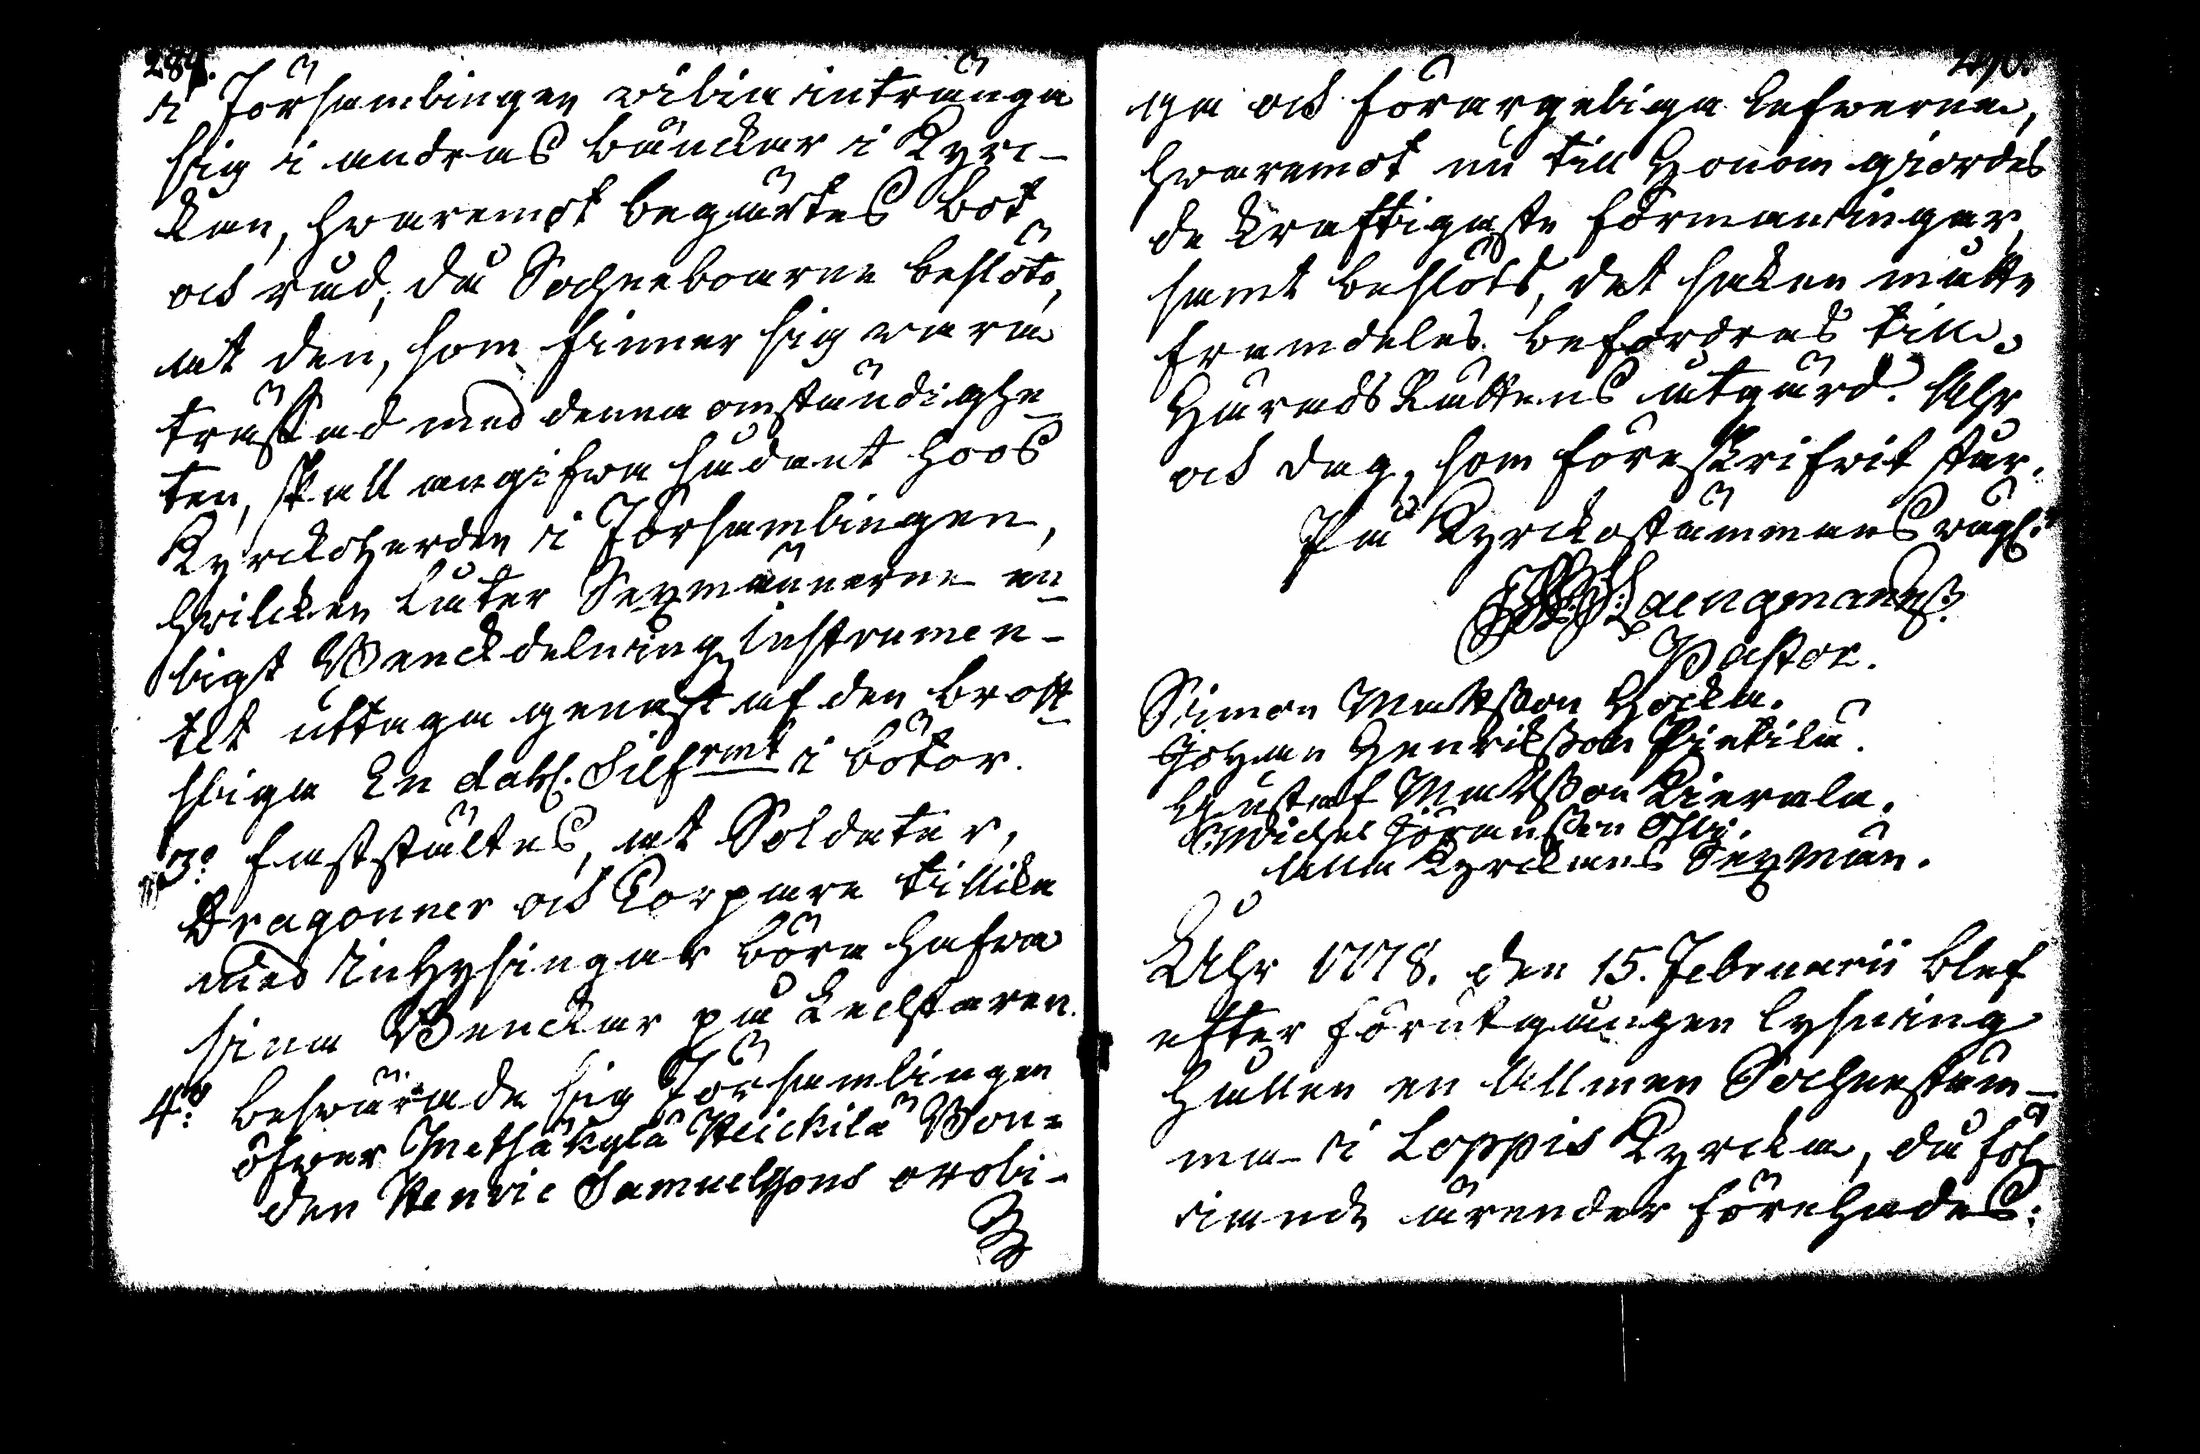 289.
i Församlingen vilia intränga
sig i andras bänckar i Kyrc-
kan, hvaremot begärtes bot
och råd, då Sochneboarne beslöto,
at den, som finner sig vara
träffad med denna omständighe-
ten, skall angifva sådant hoos
Kyrckoherden i Församlingen,
hvilcken låter Sexmännerne en-
ligt Bänckdelning Instrumen-
tet uttaga genast af den brotts-
lige En dal. Silfrmt i böter.
3o. fastställtes, at Soldater,
Dragoner och Torpare tillika
med Inhysingar böra hafva
sina Benckar på Lecktaren.
4o. besvärade sig Församlingen
öfver Metsäkylä Heickilä Bon-
den Henric Samuelssons oroli-
ga och förargeliga lefverne,
hvaremot nu till Honom giordes
de kraftigaste förmaningar,
samt beslöts, det saken måtte
framdeles befordras till
Härads Rättens åtgärd. Åhr
och dag, som föreskrifvit står.
På Kyrckostämmans vägn.
Pastor.
Simon Mattsson
Johan Henriksson Pietilä.
Gustaf Mattsson Kierala.
Michel Göransson
alla Kyrckans Sexmän.
Åhr 1778. den 15. Februarii blef
efter förutgången lysning
hållen en Allmen Sochnestäm-
ma i Loppis Kyrcka, då föl-
jande ärender förehades: